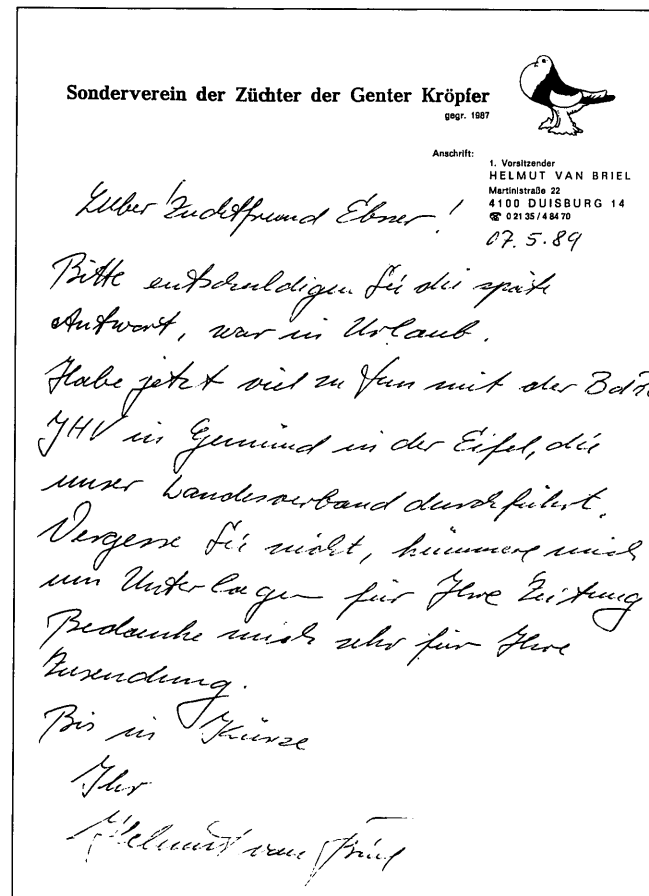 Sonderverein der Züchter der Genter Kröpfer
gegr. 1987
Anschrift:
1. Vorsitzender
HELMUT VAN BRIEL
Martinistraße 22
4100 DUISBURG 14
☎ 0 21 35 / 4 84 70
07.5.89
Lieber Zuchtfreund Ebner!
Bitte entschuldigen Sie die späte
Antwort, war in Urlaub.
Habe jetzt viel zu tun mit der
JHV in Gemünd in der Eifel, die
unser Landesverband durchführt.
Vergesse Sie nicht, kümmere mich
um Unterlagen für Ihre Zeitung
Bedanke mich sehr für Ihre
Zusendung.
Bis in Kürze
Ihr
Helmut van Briel